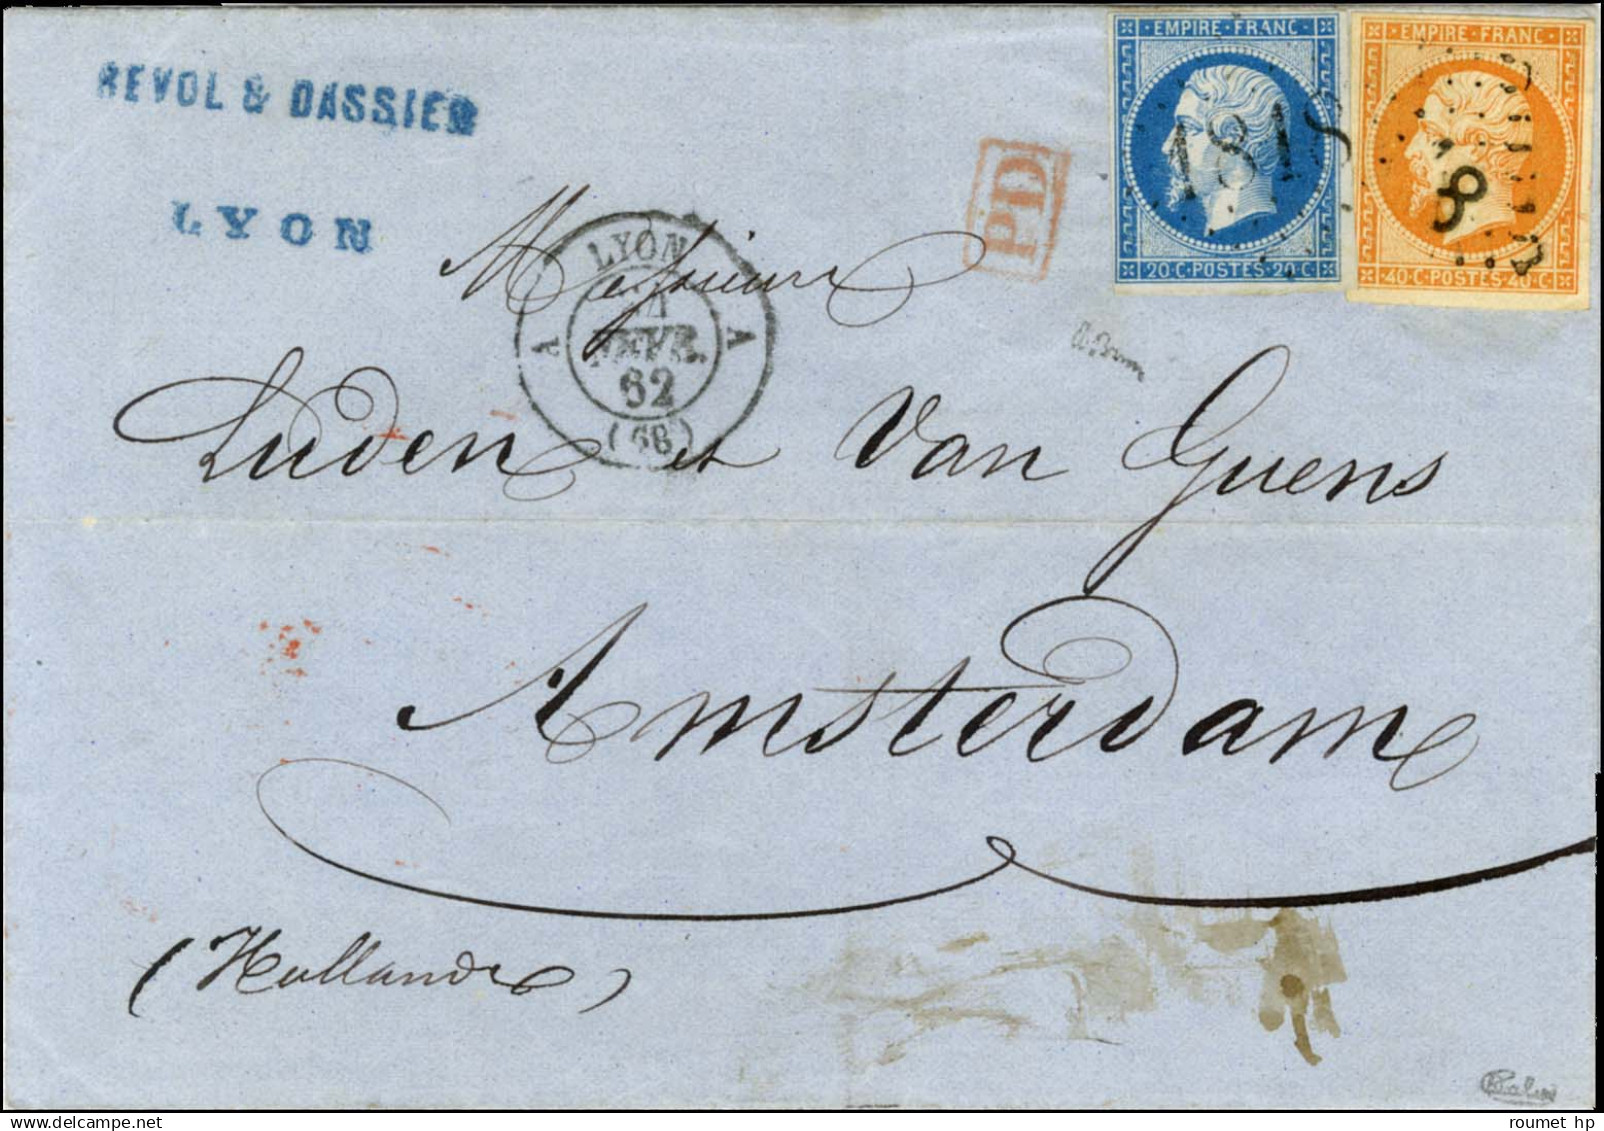 REVOL & DASSIER
LYON
EMPIRE · FRANC ·
20 · C · POSTES · 20 · C
1818
EMPIRE · FRANC ·
40 · C · POSTES · 40 · C
18
PD
LYON
A A
FEVR.
62
(68)
Messieurs
Luden et Van Guens
Amsterdam
(Hollande)
roumet hp